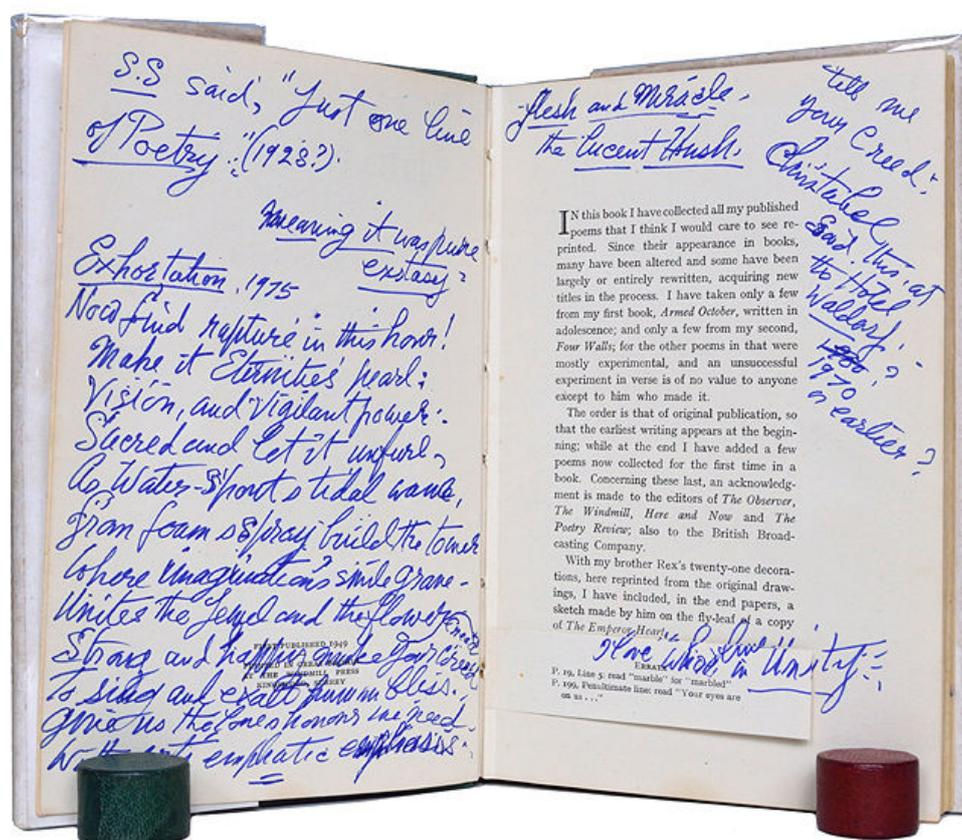 S.S said, "Just one line
of Poetry." (1923?).
meaning it was pure
extasy?
Exhortation, 1975
Now find rapture in this hour!
Make it Eternities pearl:
Vision, and vigilant power:
Sacred and let it unfurl,
As Water-Spouts tidal wave,
from foam & spray build the tower
Where imaginations smile grave -
Unites the Jewel and the flower
Strong and make your
to sing and exalt bliss.
give us the honours we need
emphatic emphasis.
FIRST PUBLISHED 1949
AT THE WINDMILL PRESS
flesh and Miracle.
the Lucent Hush.
tell me
your Creed:
Christabel
Said this, at
the Hotel
Waldorf.
1970
or earlier?
IN this book I have collected all my published
poems that I think I would care to see re-
printed. Since their appearance in books,
many have been altered and some have been
largely or entirely rewritten, acquiring new
titles in the process. I have taken only a few
from my first book, Armed October, written in
adolescence; and only a few from my second,
Four Walls; for the other poems in that were
mostly experimental, and an unsuccessful
experiment in verse is of no value to anyone
except to him who made it.
The order is that of original publication, so
that the earliest writing appears at the begin-
ning; while at the end I have added a few
poems now collected for the first time in a
book. Concerning these last, an acknowledg-
ment is made to the editors of The Observer,
The Windmill, Here and Now and The
Poetry Review; also to the British Broad-
casting Company.
With my brother Rex's twenty-one decora-
tions, here reprinted from the original draw-
ings, I have included, in the end papers, a
sketch made by him on the fly-leaf of a copy
of The Emperor Heart.
Love in Unity
ERRATA
P. 19, Line 5: read "marble" for "marbled"
P. 199, Penultimate line: read "Your eyes are
on us ..."